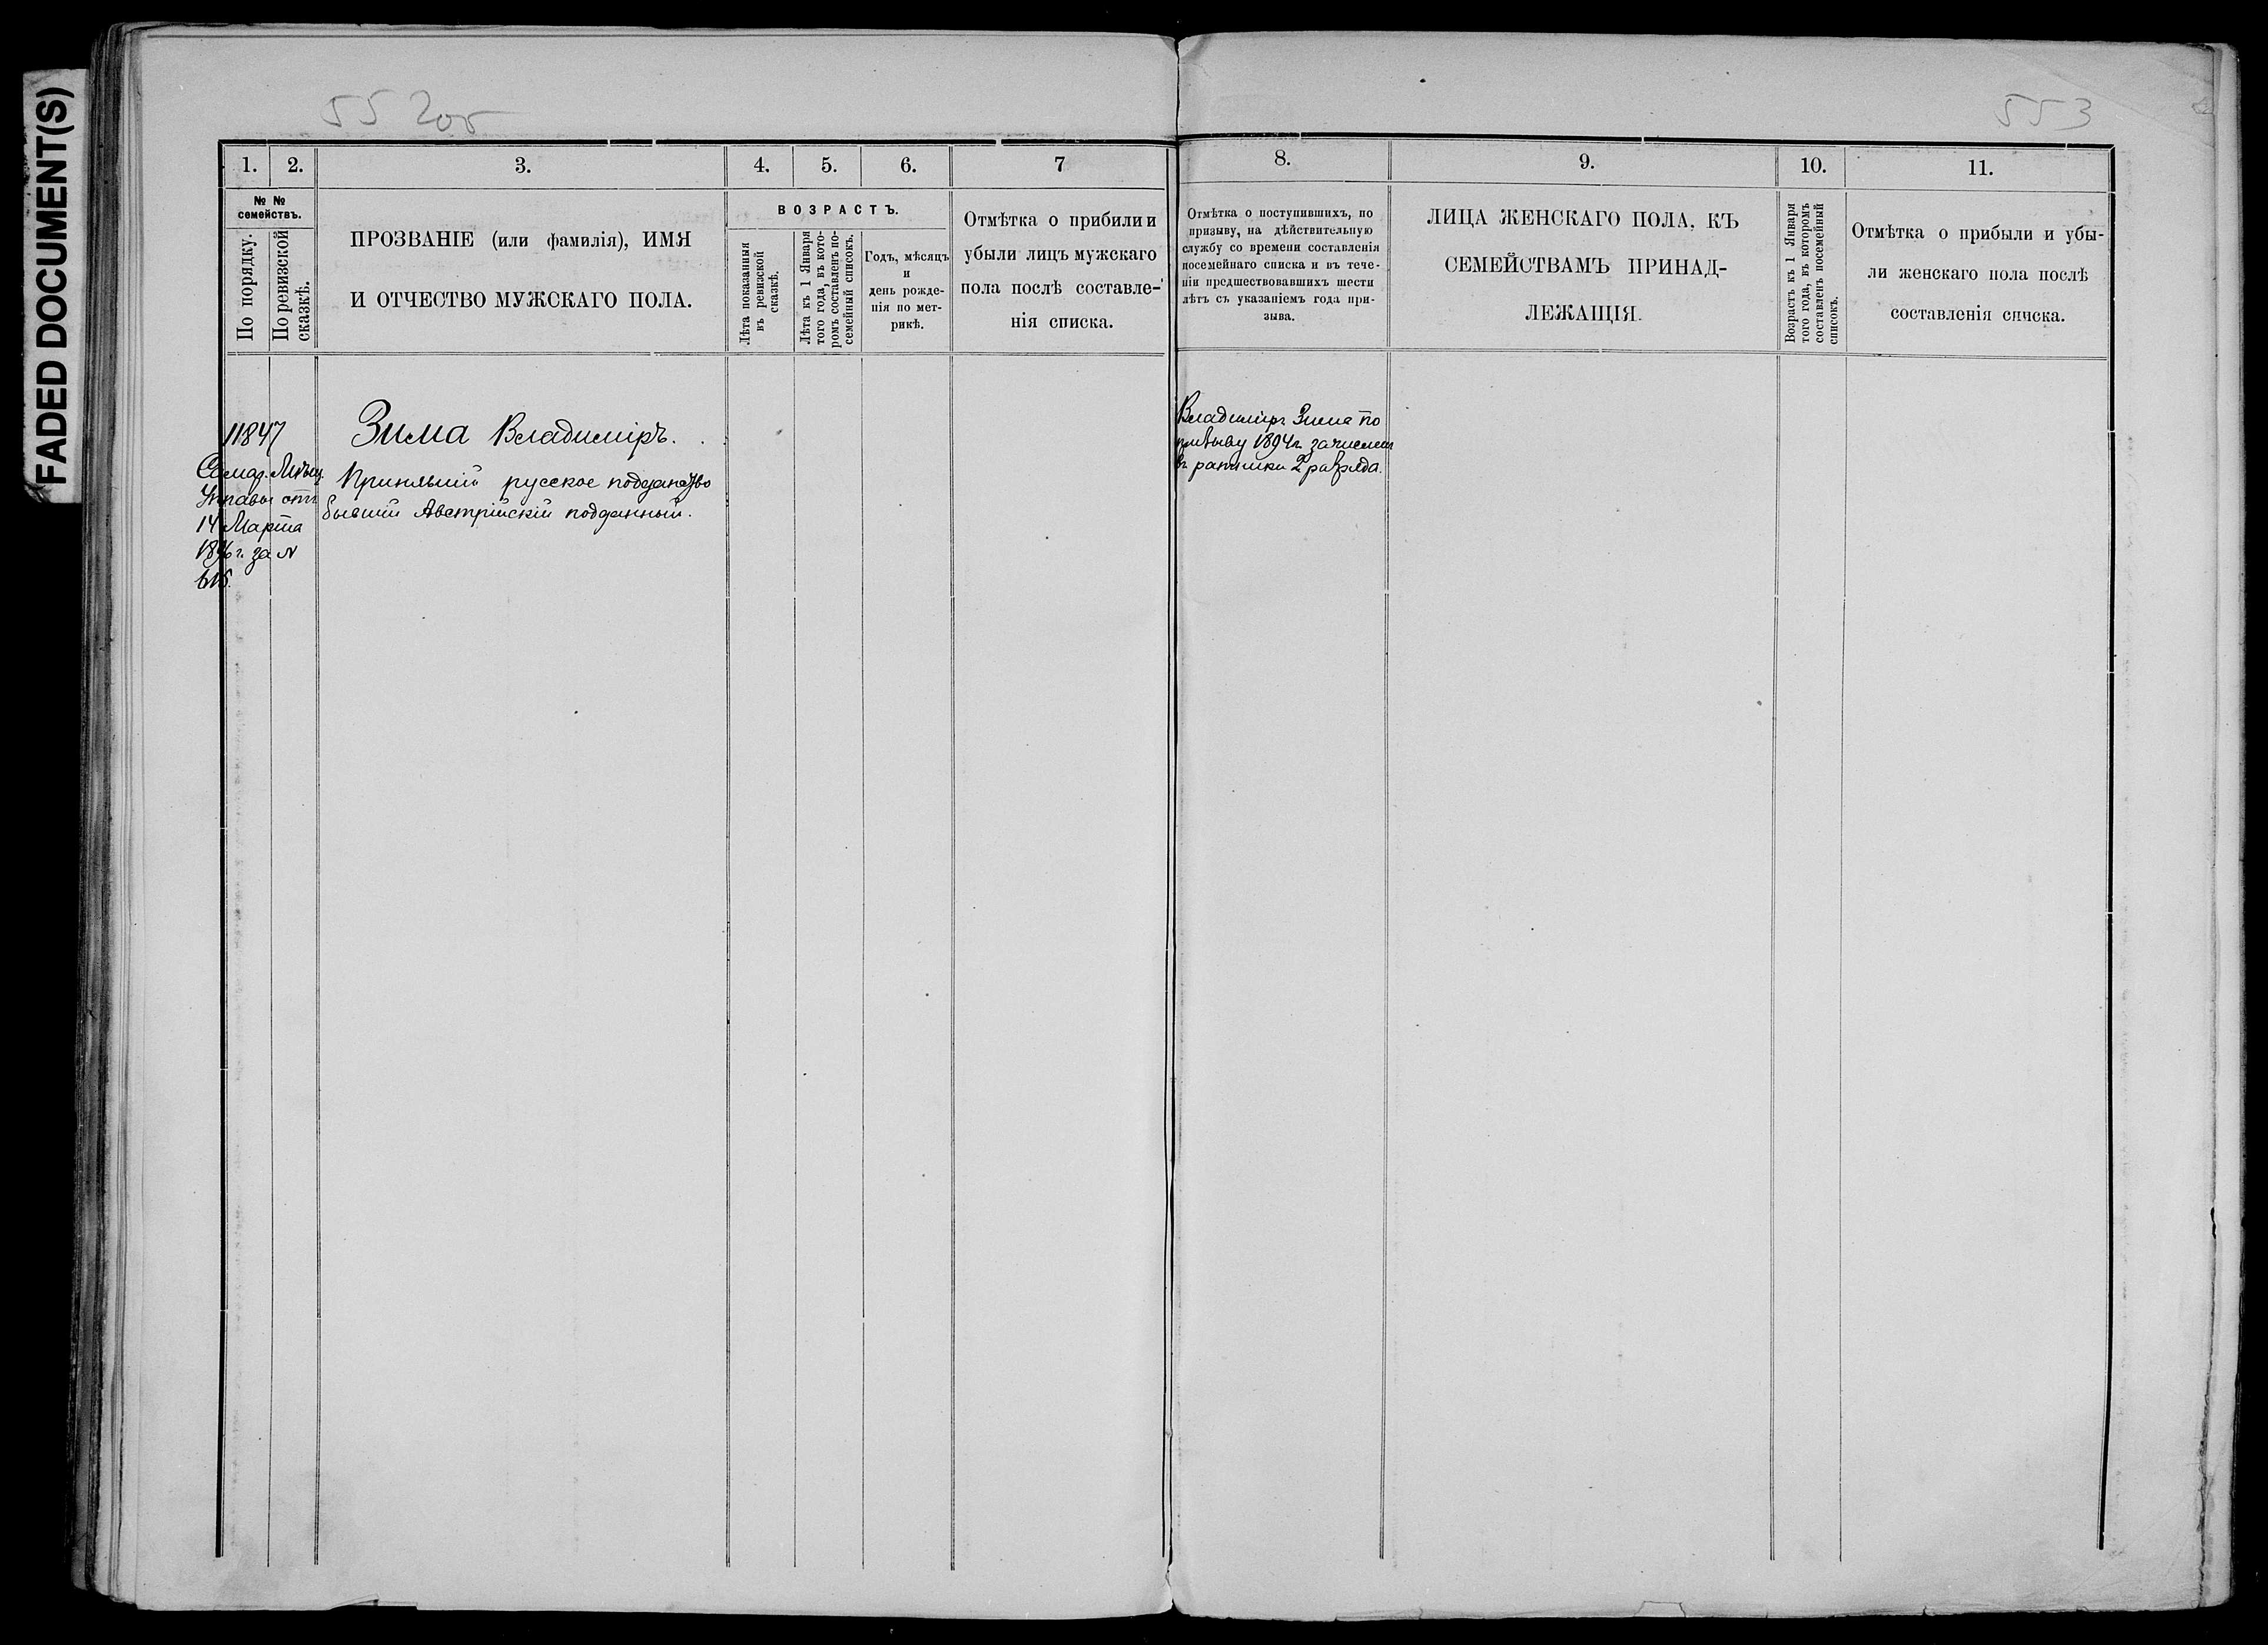 FADED DOCUMENT(S)
552об
553
1.
2.
3.
4.
5.
6.
7
8.
9.
10.
11.
№ №
семействъ.
По порядку.
По ревизской
сказкѣ.
ПРОЗВАНІЕ (или фамилія), ИМЯ
И ОТЧЕСТВО МУЖСКАГО ПОЛА.
ВОЗРАСТЪ.
Лѣта показанныя
въ ревизской
сказкѣ.
Лѣта къ 1 Января
того года, въ кото-
ромъ составленъ по-
семейный списокъ.
Годъ, мѣсяцъ
и
день рожде-
нія по мет-
рикѣ.
Отмѣтка о прибили и
убыли лицъ мужскаго
пола послѣ составле-
нія списка.
Отмѣтка о поступившихъ, по
призыву, на дѣйствительную
службу со времени составленія
посемейнаго списка и въ тече-
ніи предшествовавшихъ шести
лѣтъ съ указаніемъ года при-
зыва.
ЛИЦА ЖЕНСКАГО ПОЛА, КЪ
СЕМЕЙСТВАМЪ ПРИНАД-
ЛЕЖАЩІЯ.
Возрастъ къ 1 Января
того года, въ которомъ
составленъ посемейный
списокъ.
Отмѣтка о прибыли и убы-
ли женскаго пола послѣ
составленія списка.
11847
Управы отъ
14 Марта
г. за №
Зима Владиміръ.
Принявшій русское подданство
бывшій Австрійскій подданный.
Владиміръ Зима по
призыву 1894г. зачисленъ
въ ратники 2 разряда.